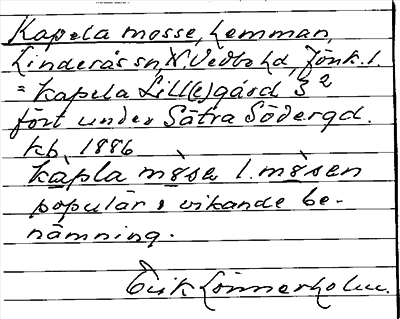 Kapela mosse, Lemman,
Linderås sn, N. Vedbo hd, Jönk. l.
= Kapela Lill(e)gård 3 2
fört under Sätra Södergd.
kb 1886
kàpla möse l. mösen
populär, vikande be-
nämning.
Erik Lönnerholm.